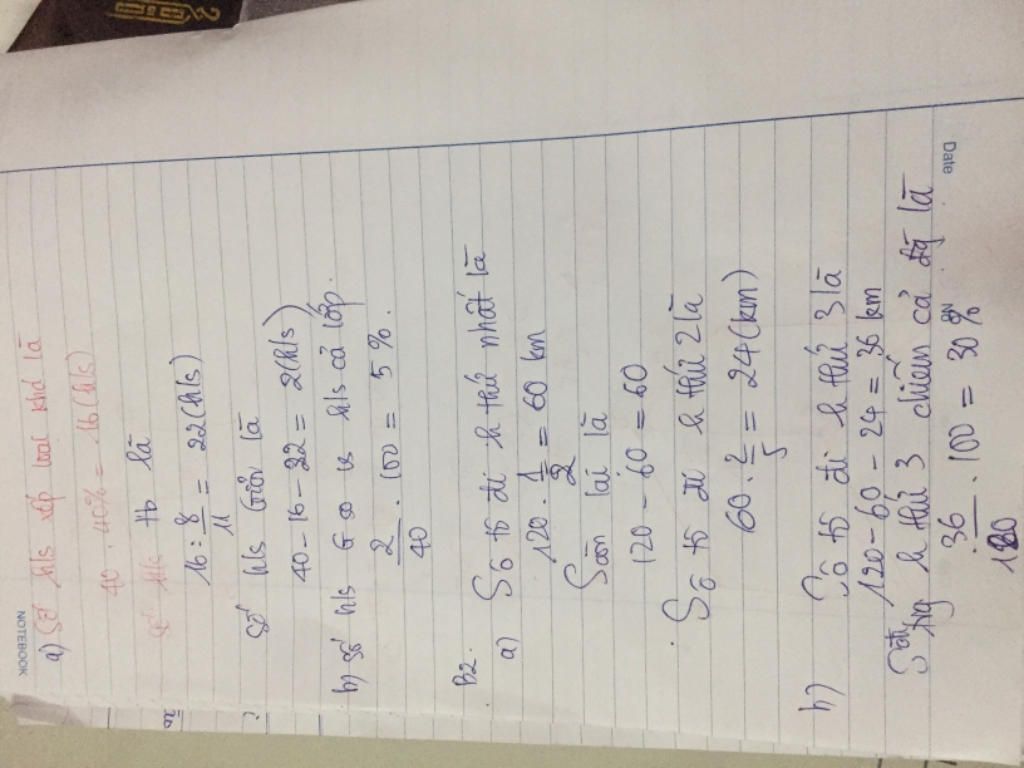 NOTEBOOK
Date
No
a) Số hls xếp loại khá là
40 . 40% = 16 (hls)
số hls tb là
16 : 8/11 = 22 (hls)
số hls Giỏi là
40 - 16 - 22 = 2 (hls)
b) số hls G so vs hls cả lớp.
2/40 . 100 = 5 %.
B2.
a) S ô tô đi h thứ nhất là
120 . 1/2 = 60 km
S còn lại là
120 - 60 = 60
S ô tô đi h thứ 2 là
60 . 2/5 = 24 (km)
b) S ô tô đi h thứ 3 là
120 - 60 - 24 = 36 km
h thứ 3 chiếm cả đg là
36/120 . 100 = 30 %